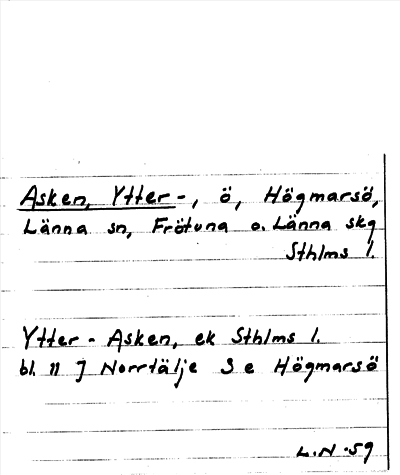 Asken, Ytter-, ö, Högmarsö,
Länna sn, Frötuna o. Länna skg
Sthlms l.
Ytter-Asken, ek Sthlms l.
bl. 11 J Norrtälje 3 e Högmarsö
L.N.-59